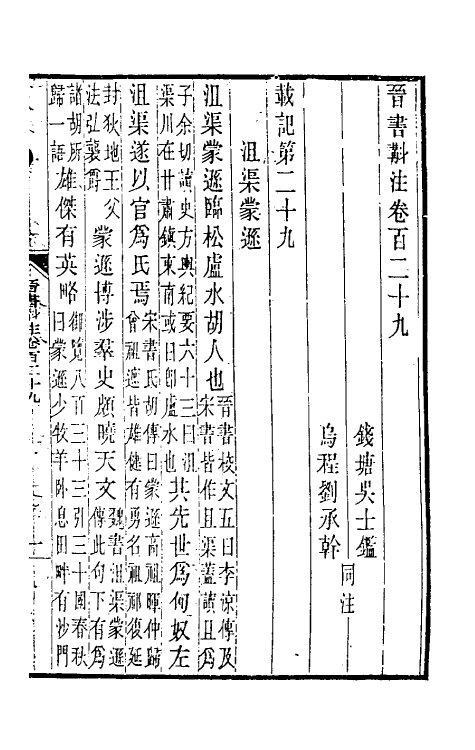 晉書斠注卷百二十九
錢塘吳士鑑
烏程劉承幹
同注
載記第二十九
沮渠蒙遜
沮渠蒙遜臨松盧水胡人也
晉書校文五曰李諒傳及
宋書皆作且渠蓋讀且爲
子余切讀史方輿紀要六十三曰沮
渠川在甘肅鎮東南或曰卽盧水也
其先世爲匈奴左
沮渠遂以官爲氏焉
宋書氐胡傳曰蒙遜高祖暉仲歸
曾祖遮皆雄健有勇名祖祁復延
封狄地王父
法弘襲爵
蒙遜博涉羣史頗曉天文
魏書沮渠蒙遜
傳此句下有爲
諸胡所
歸一語
雄傑有英略
御覽八百三十三引三十國春秋
曰蒙遜少牧羊卧息田畔有沙門
晉書斠注卷百二十九